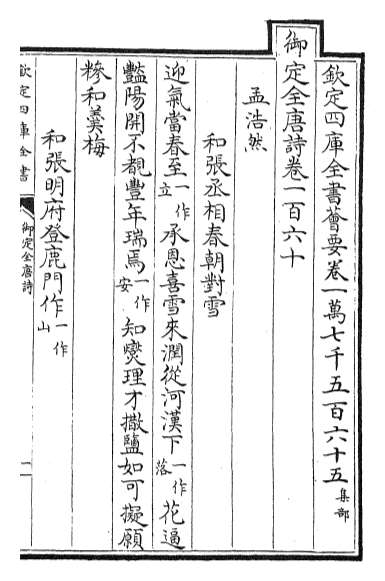 欽定四庫全書薈要卷一萬七千五百六十五集部
御定全唐詩卷一百六十
孟浩然
和張丞相春朝對雪
迎氣當春至一作立承恩喜雪來潤從河漢下一作落花逼
豔陽開不覩豐年瑞焉一作安知燮理才撒鹽如可擬願
糝和羹梅
和張明府登鹿門作一作山
欽定四庫全書
御定全唐詩
一